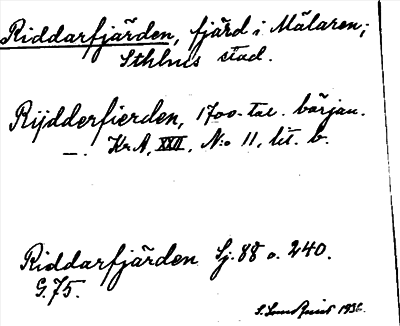 Riddarfjärden, fjärd i Mälaren;
Sthlms stad.
Rijdderfierden, 1700-tal. början.
—. Kr.A, XXII, N:o 11, lit. b.
Riddarfjärden Sj. 88 o. 240.
G.75.
1936.